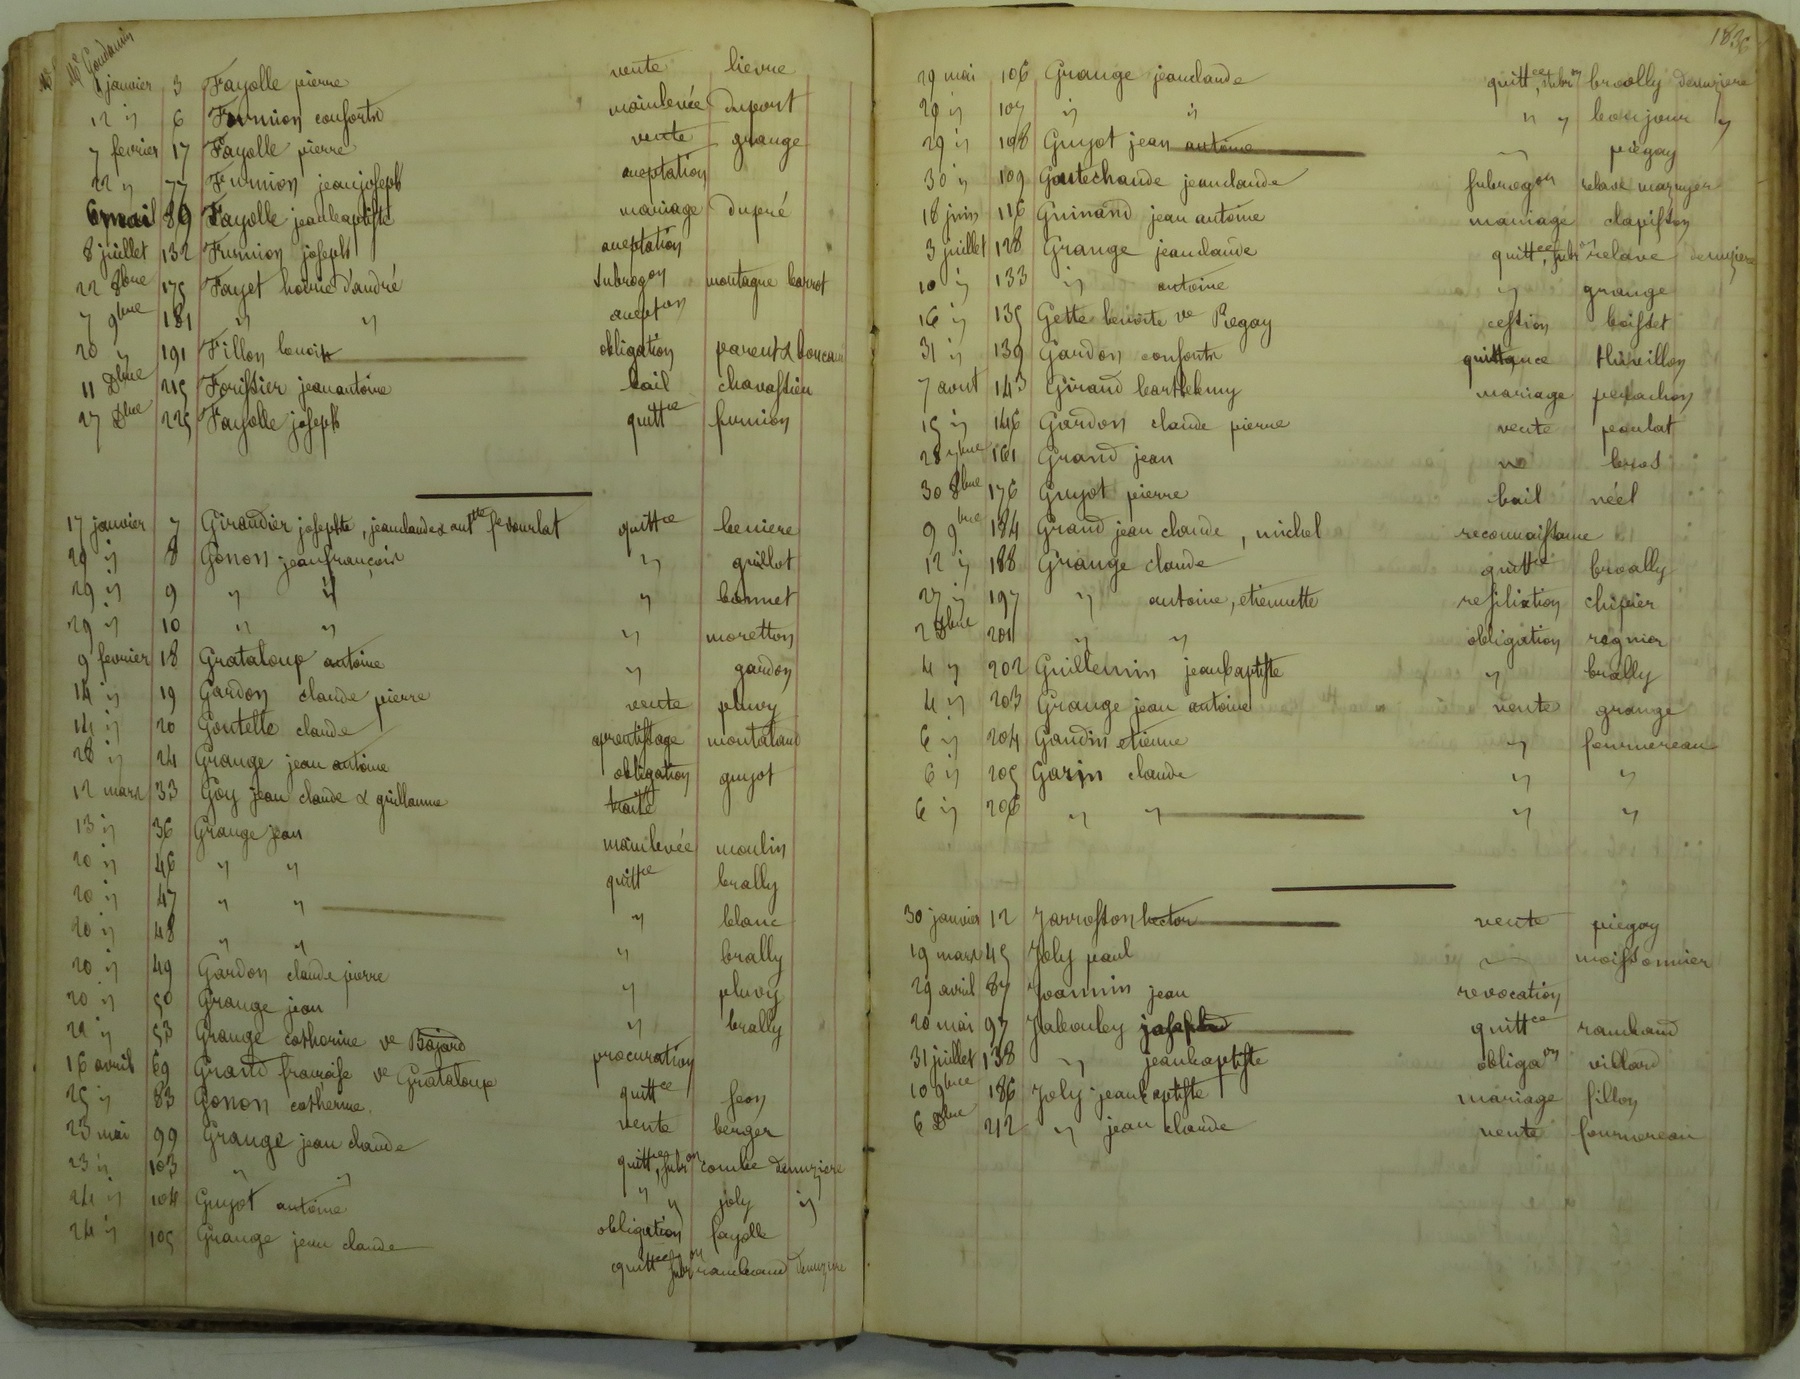 Me Goudamin
1 janvier 3 Fayolle pierre vente lievre
12 " 6 Furnion consorts mainlevée dupont
7 fevrier 17 Fayolle pierre vente grange
22 " 77 Furnion jean joseph aueptation
6 mai 89 Fayolle jeanbaptiste mariage dupré
8 juillet 132 Furnion joseph aueptation
22 8bre 175 Fayet hoirie d'andré subrogon montagne barrot
7 9bre 181 " " auepton
20 " 191 Fillon benoit obligation parent &
11 Dbre 215 Forissier jeanantoine bail chavassieu
27 Dbre 225 Fayolle joseph quittce furnion
17 janvier 7 Giraudier josephte, jeanclaude & antne fe vourlat quittce beniere
29 " 8 Gonon jeanfrançois " guillot
29 " 9 " " " bonnet
29 " 10 " " " moretton
9 fevrier 18 Grataloup antoine " gardon
14 " 19 Gardon claude pierre vente pluvy
14 " 20 Goutelle claude aprentissage montaland
28 " 24 Grange jean antoine obligation guyot
12 mars 33 Goy jean claude & guillaume traité
13 " 36 Grange jean mainlevée moulin
20 " 46 " " quittce brally
20 " 47 " " " blanc
20 " 48 " " " brally
20 " 49 Gardon claude pierre " pluvy
20 " 50 Grange jean " brally
22 " 53 Grange catherine ve Bajard procuration
16 avril 69 Grand françoise ve Grataloup quittce feon
25 " 83 Gonon catherine vente berger
23 mai 99 Grange jean claude quittce, subron combe denuziere
23 " 103 " " " " joly "
24 " 104 Guyot antoine obligation fayolle
24 " 105 Grange jean claude quittce subron rambaud denuziere
1836
29 mai 106 Grange jeanclaude quittce, subron broally denuziere
29 " 107 " " " " bonjour "
29 " 108 Guyot jean antoine " piegay
30 " 109 Goutechaude jeanclaude subrogon relave
18 juin 116 Guinand jean antoine mariage clapisson
3 juillet 128 Grange jeanclaude quittce, subron relave denuziere
10 " 133 " antoine " grange
16 " 135 Gette benoite ve Regay cession boisset
31 " 139 Gardon consorts quittance thivillon
7 aout 143 Giraud barthelemy mariage perrachon
15 " 146 Gardon claude pierre vente poulat
28 7bre 161 Grand jean do bras
30 8bre 176 Guyot pierre bail néel
9 9bre 184 Grand jean claude, michel reconnaissance
12 " 188 Grange claude quittce broally
27 " 197 " antoine, etiennette resiliation chipier
2 Dbre 201 " " obligation regnier
4 " 202 Guillermin jeanbaptiste " brally
4 " 203 Grange jean antoine vente grange
6 " 204 Gaudin etienne " fournereau
6 " 205 Garin claude " "
6 " 206 " " " "
30 janvier 12 Jarrosson hector vente piegay
19 mars 45 Joly paul " moissonnier
29 avril 87 Joannin jean revocation
20 mai 97 Jabouley joseph quittce rambaud
31 juillet 138 " jeanbaptiste obligaon villard
10 9bre 186 Joly jeanbaptiste mariage fillon
6 Dbre 212 " jean claude vente fournereau